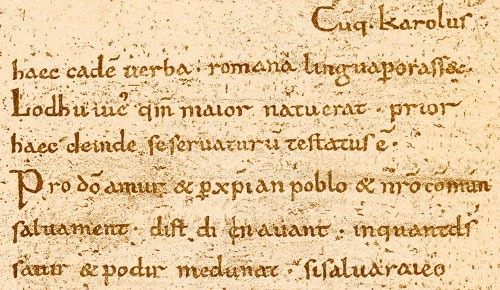 Cūq. karolus
haec eadē uerba · romana linguaperorasset·
Lodhuuic' qm̄ maior natuerat · prior
haec deinde seseruaturū testatus ē·
Pro dō amur & pxp̄ian poblo & nr̄o cōmun
saluament · dist di en auant · inquantds
sauir & podir medunat · sisaluaraieo